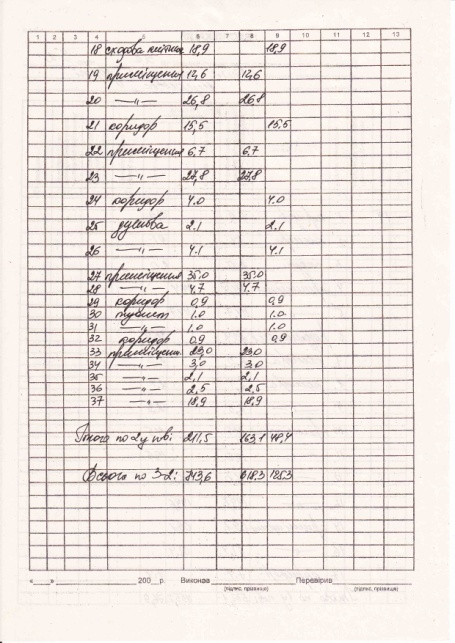 1 2 3 4 5 6 7 8 9 10 11 12 13
18 сходова клітка 18,9 18,9
19 приміщення 12,6 12,6
20 —〃— 26,8 26,8
21 коридор 15,5 15,5
22 приміщення 6,7 6,7
23 —〃— 27,8 27,8
24 коридор 4.0 4.0
25 душова 2.1 2.1
26 —〃— 4.1 4.1
27 приміщення 35.0 35.0
28 —〃— 4.7 4.7
29 коридор 0,9 0,9
30 туалет 1.0 1.0
31 —〃— 1.0 1.0
32 коридор 0,9 0,9
33 приміщення 23,0 23.0
34 —〃— 3,0 3.0
35 —〃— 2,1 2,1
36 —〃— 2,5 2,5
37 —〃— 18,9 18,9
по 2у пов: 211,5 163,1 48,4
Всього по 3-2: 743,6 618.3 125.3
«___»__________ 200__ р. Виконав Перевірив
(підпис, прізвище) (підпис, прізвище)